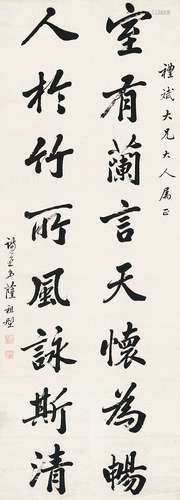 禮斌大兄大人属正
室有蘭言天懷為暢
人於竹所風詠斯清
薩祖型